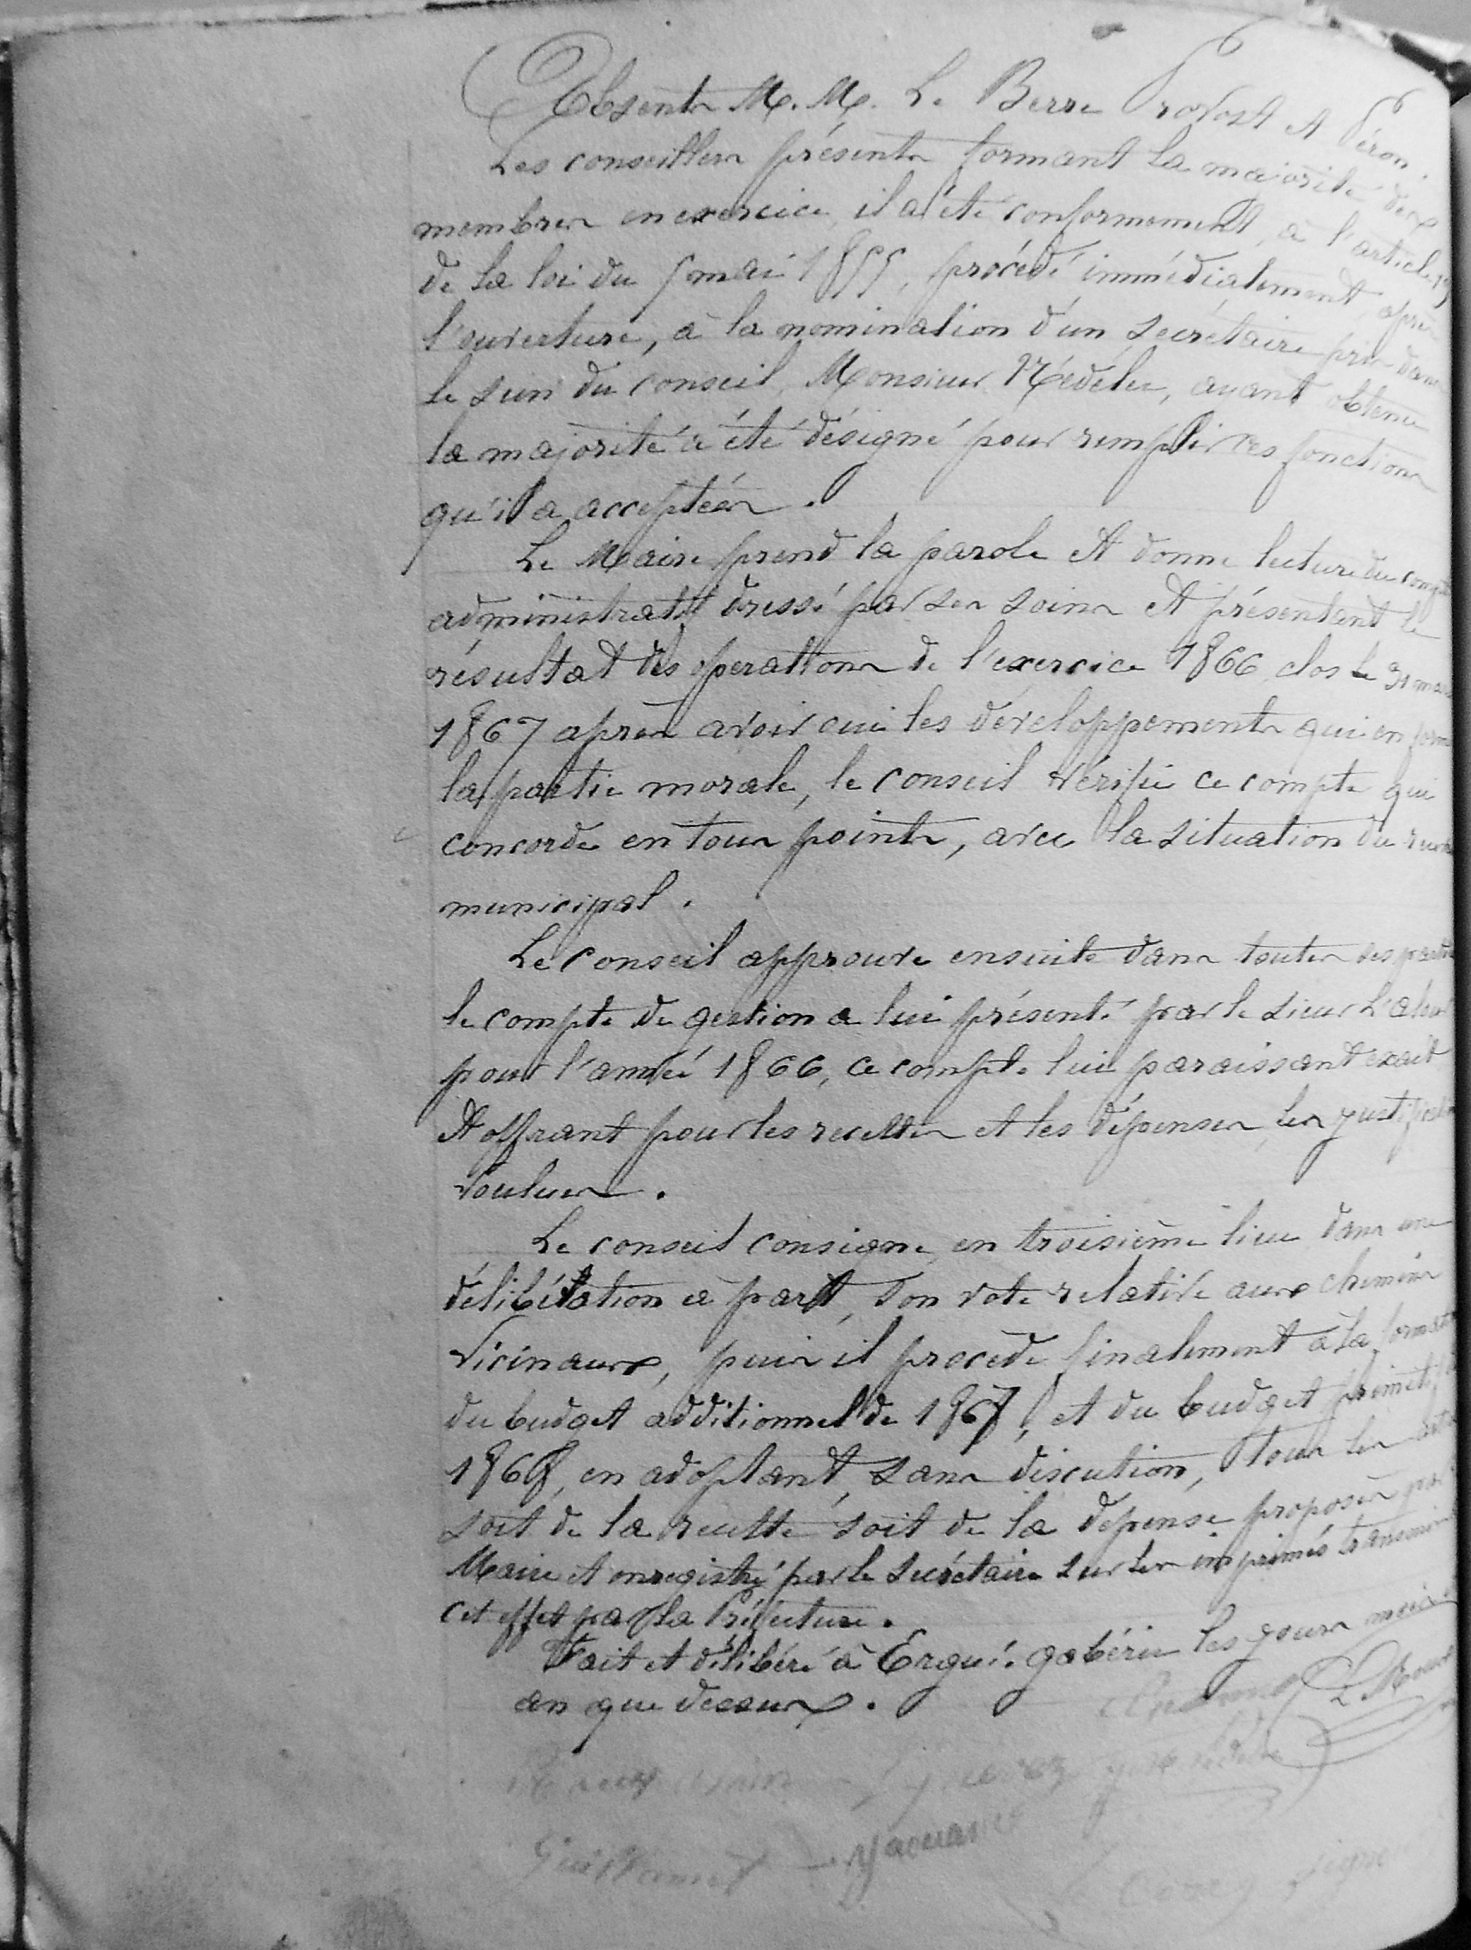 Absents M. M. Le Berre Provost et Péron.
Les conseillers présents formant la majorité des
membres en exercice, il a été conformement, à l'article 19
de la loi du 5 mai 1855, procédé immédiatement, après
l'ouverture, à la nomination d'un secrétaire pris dans
le sein du conseil, Monsieur Nédélec, ayant obtenu
la majorité a été désigné pour remplir ces fonctions
qu'il a acceptées.
Le Maire prend la parole et donne lecture du compte
administratif dressé par ses soins et présentant le
résultat des operations de l'exercice 1866, clos le 31 mars
1867 après avoir oui les développements qui en
la partie morale, le conseil vérifie ce compte qui
concorde en tous points, avec la situation du
municipal.
Le conseil approuve ensuite dans toutes ses parties
le compte de gestion a lui présenté par le sieur
pour l'année 1866, ce compte lui paraissant exact
et offrant pour les recettes et les dépenses les
voulues.
Le conseil consigne, en troisième lieu dans une
délibération à part, son vote relative aux chemins
vicinaux, puis il procède finalement à la
du budget additionnel de 1867, et du budget primitif
1868, en adoptant, sans discution, tous les
soit de la recette soit de la dépense proposés par
Maire et enregistré par le secrétaire sur les imprimés transmis
cet effet par la Préfecture.
Fait et délibéré à Ergué-gabéric les jours mois
an que dessus.
Yaouanc